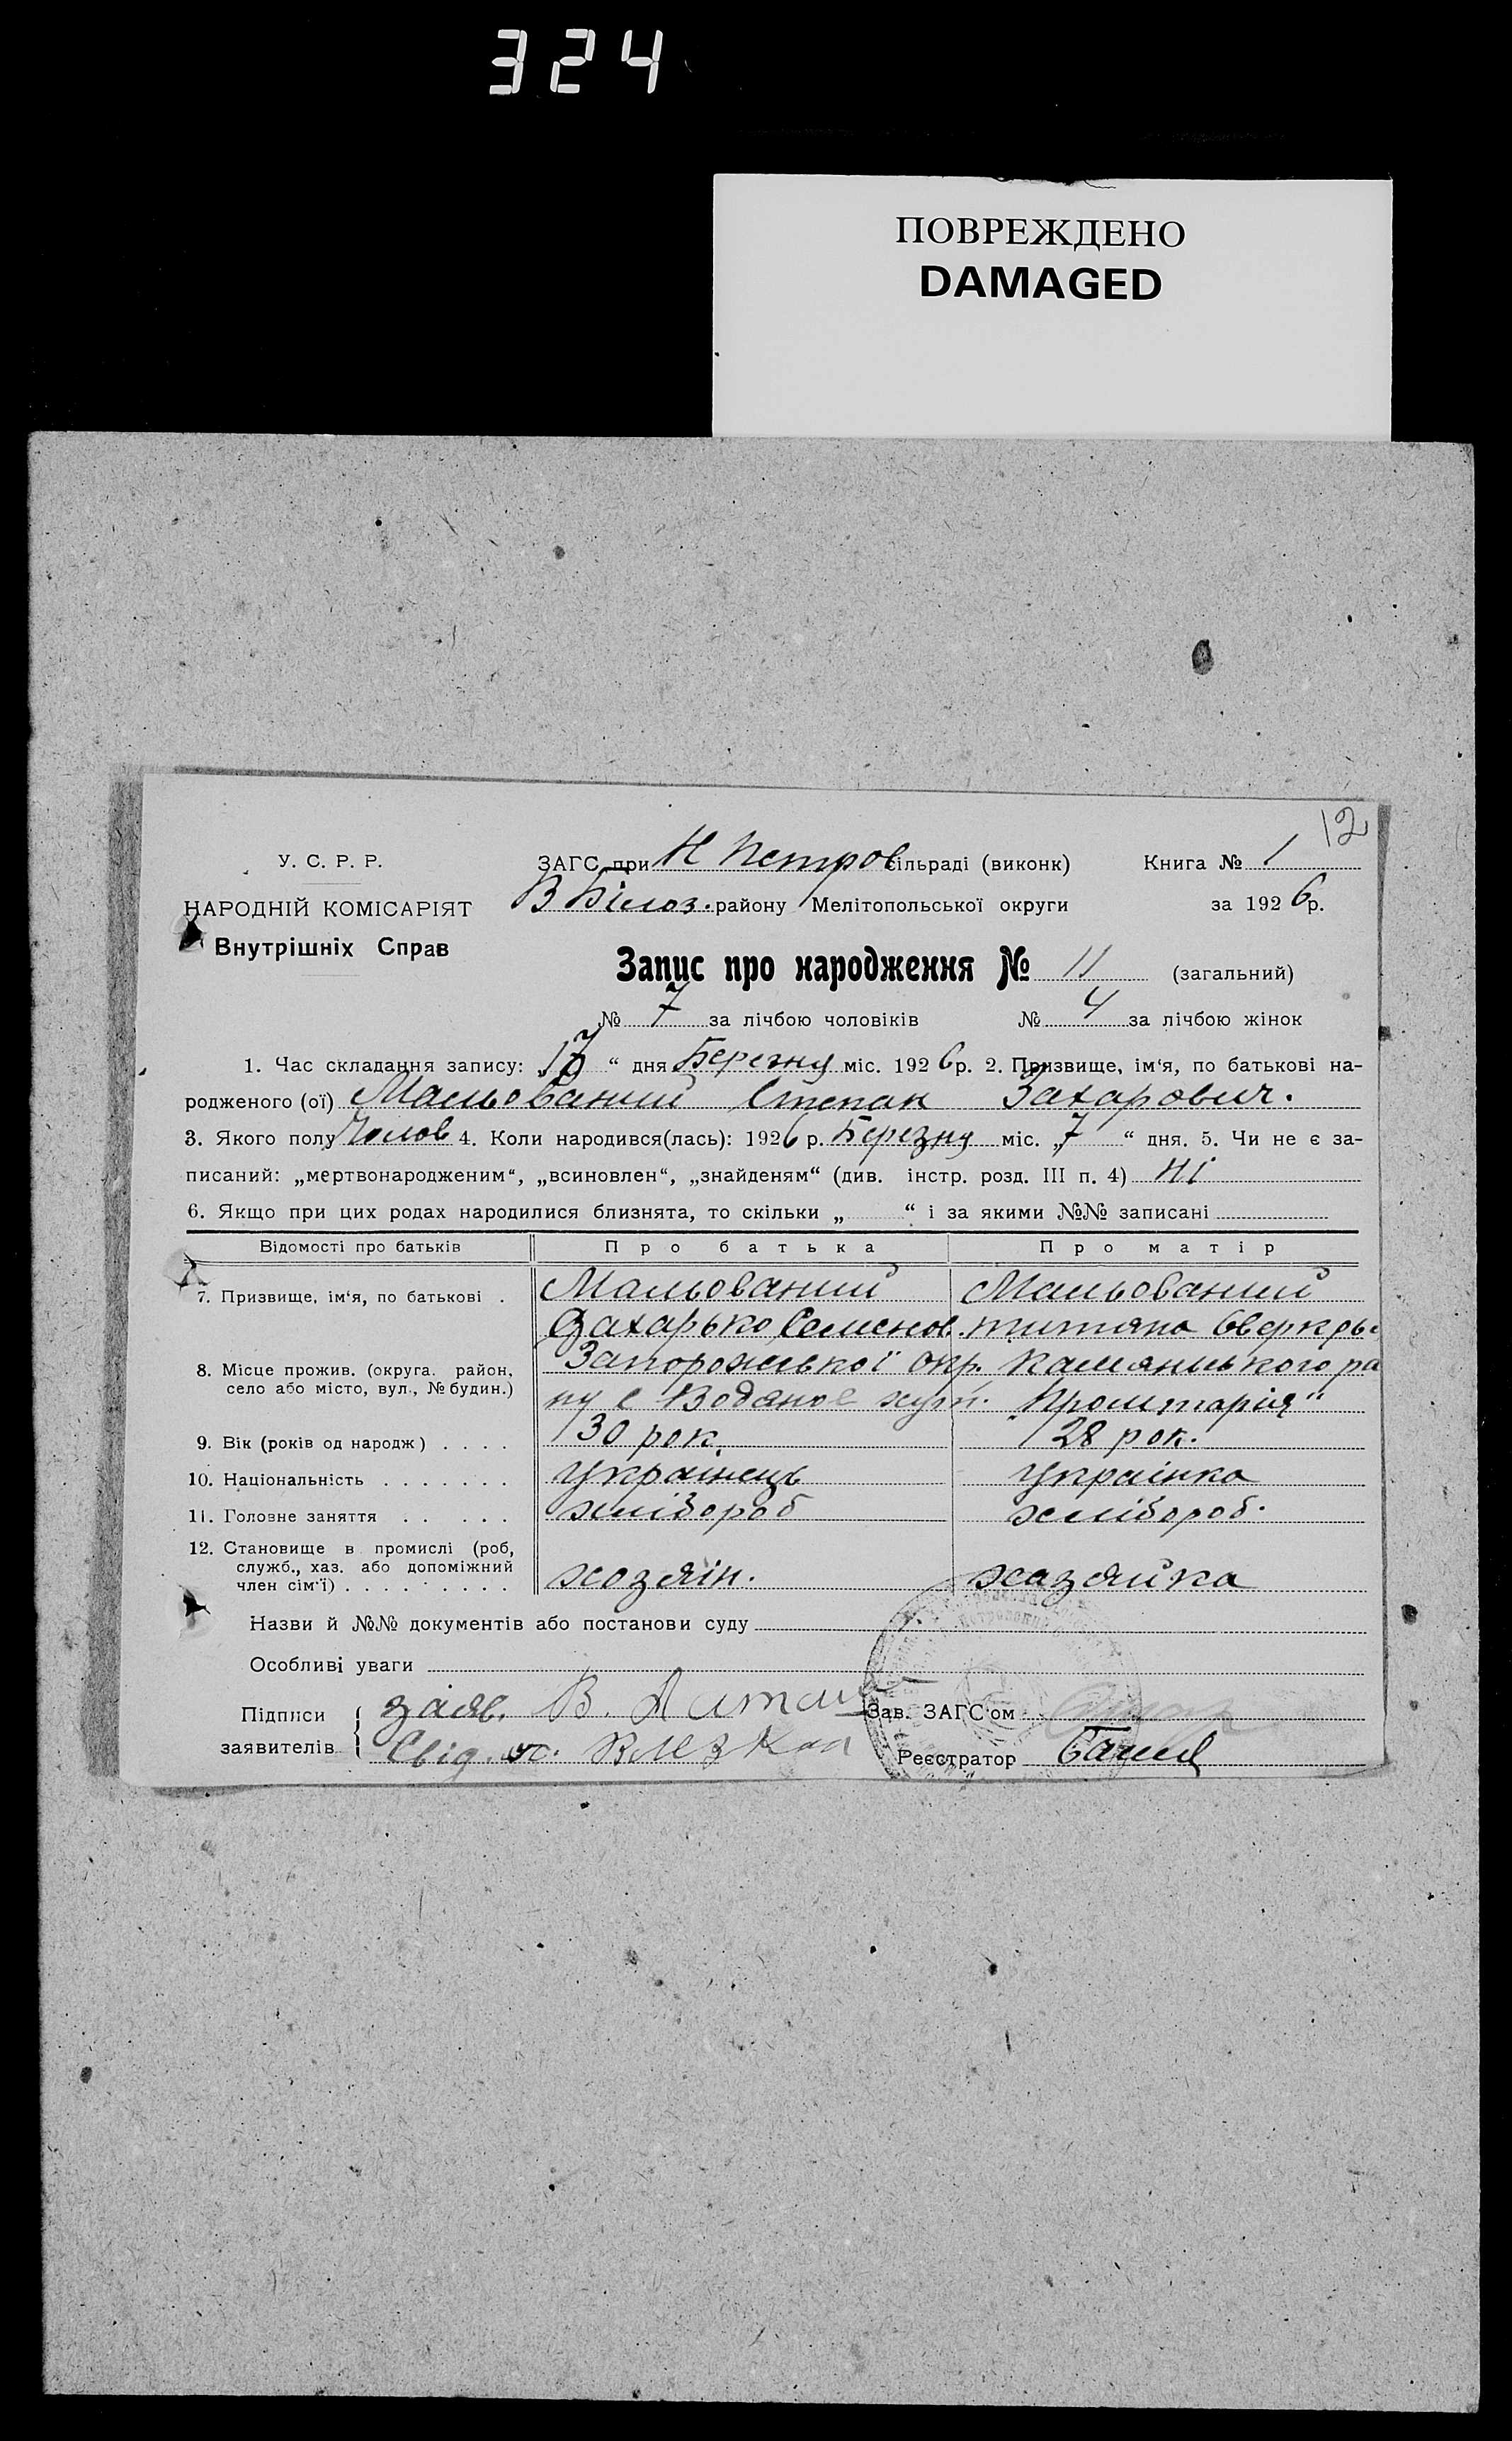 324
ПОВРЕЖДЕНО
DAMAGED
12
У. С. Р. Р.
ЗАГС при Н Петров сільраді (виконк) Книга № 1
НАРОДНІЙ КОМІСАРІЯТ
В Білоз. району Мелітопольської округи за 1926 р.
Внутрішніх Справ
Запис про народження № 11 (загальний)
№ 7 за лічбою чоловіків № 4 за лічбою жінок
1. Час складання запису: „17“ дня Березня міс. 1926 р. 2. Призвище, ім‘я, по батькові на-
родженого (ої) Мальований Степан Захарович.
3. Якого полу Чолов 4. Коли народився(лась): 1926 р. Березня міс. „7“ дня. 5. Чи не є за-
писаний: „мертвонародженим“, „всиновлен“, „знайденям“ (див. інстр. розд. III п. 4) Ні
6. Якщо при цих родах народилися близнята, то скільки „ “ і за якими №№ записані
Відомості про батьків Про батька Про матір
7. Призвище, ім‘я, по батькові . Мальований Мальований
Захарько Семенов. титяна
8. Місце прожив. (округа. район, Запорожської окр. Камяньського ра
село або місто, вул., № будин.) ну с Водяное хут.
9. Вік (років од народж) . . . . 30 рок. 28 рок.
10. Національність . . . . . . українець українка
11. Головне заняття . . . . . хлібороб хлібороб.
12. Становище в промислі (роб,
служб., хаз. або допоміжний
член сім‘ї) . . . . . . . . . хозяін. хазяйка
Назви й №№ документів або постанови суду
Особливі уваги
Підписи заяв. В. Зав. ЗАГС‘ом
заявителів Свід. Реєстратор